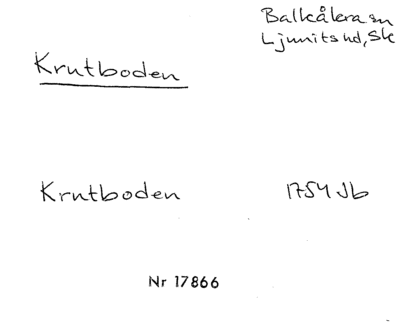 Balkåkra sn
Ljunits hd, Sk
Krutboden
Krutboden 1754 Jb
Nr 17866